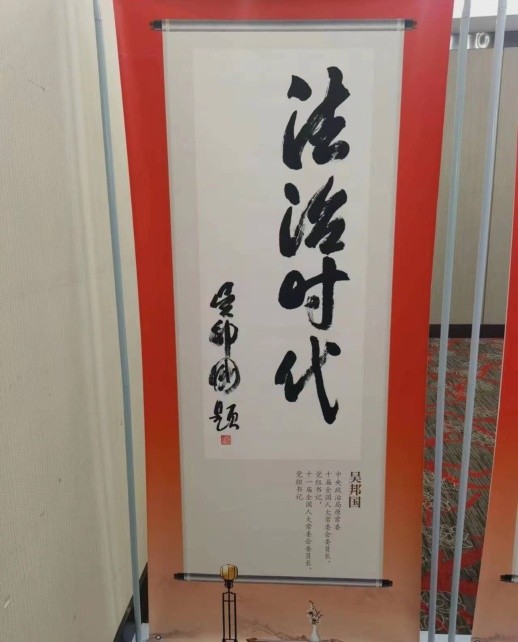 法治时代
吴邦国题
吴邦国
中央政治局原常委
十届全国人大常委会委员长、
党组书记,
十一届全国人大常委会委员长、
党组书记